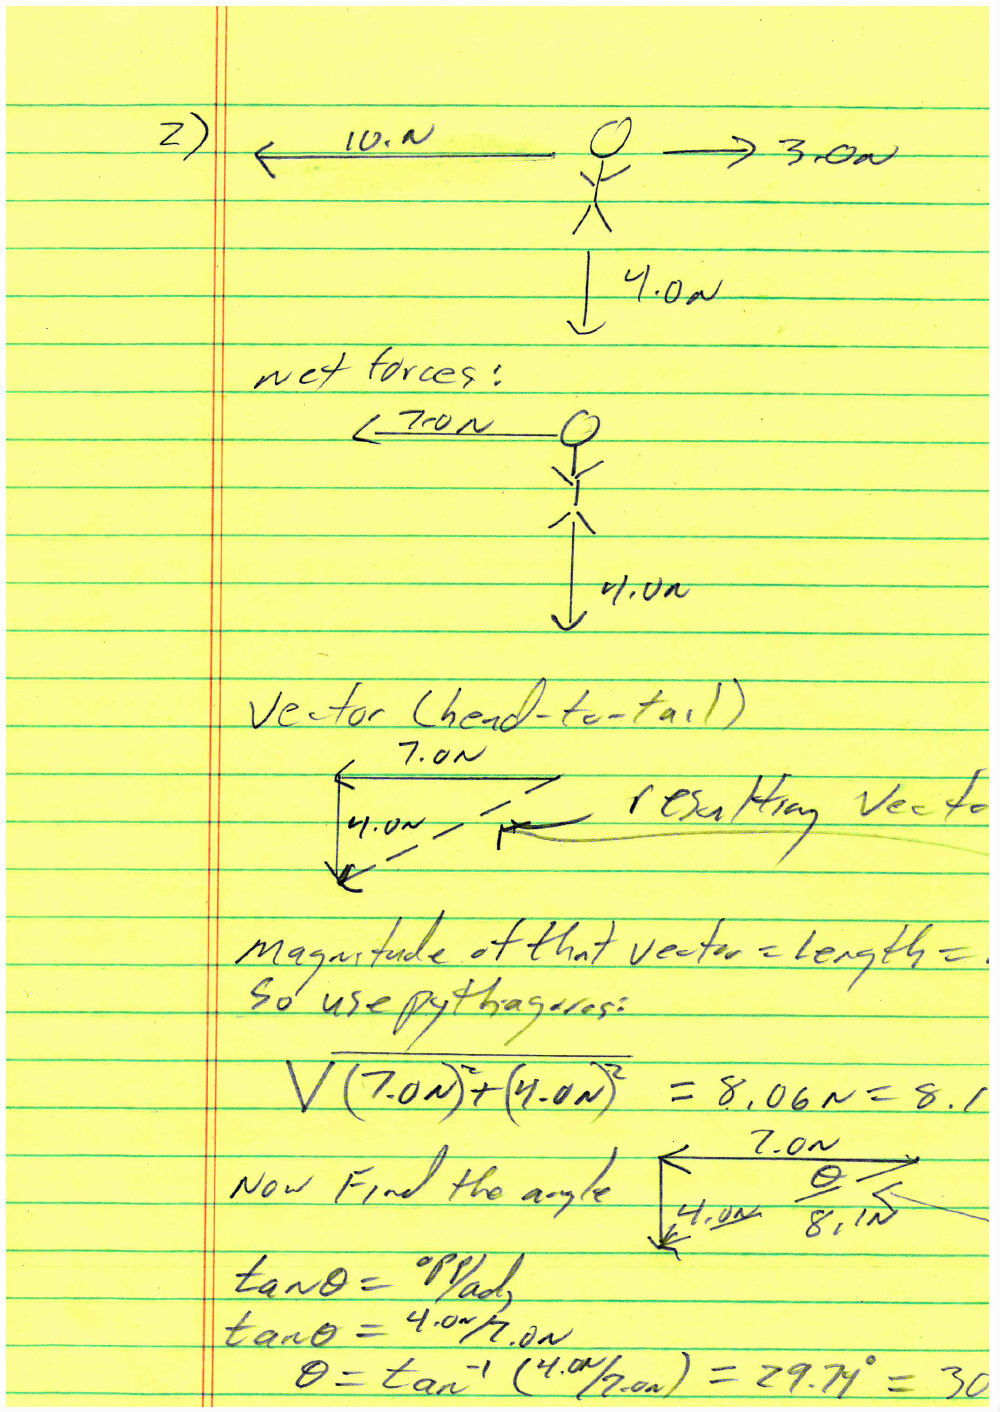 2)
10.N
3.0N
4.0N
net forces:
7.0N
4.0N
Vector (head-to-tail)
7.0N
4.0N
resulting Vecto
magnitude of that vector = Length =
So use pythagoras:
√(7.0N)²+(4.0N)² = 8.06N = 8.1
7.0N
Now Find the angle
θ
4.0N
8.1N
tanθ = opp/adj
tanθ = 4.0N/7.0N
θ = tan⁻¹ (4.0N/7.0N) = 29.74° = 30